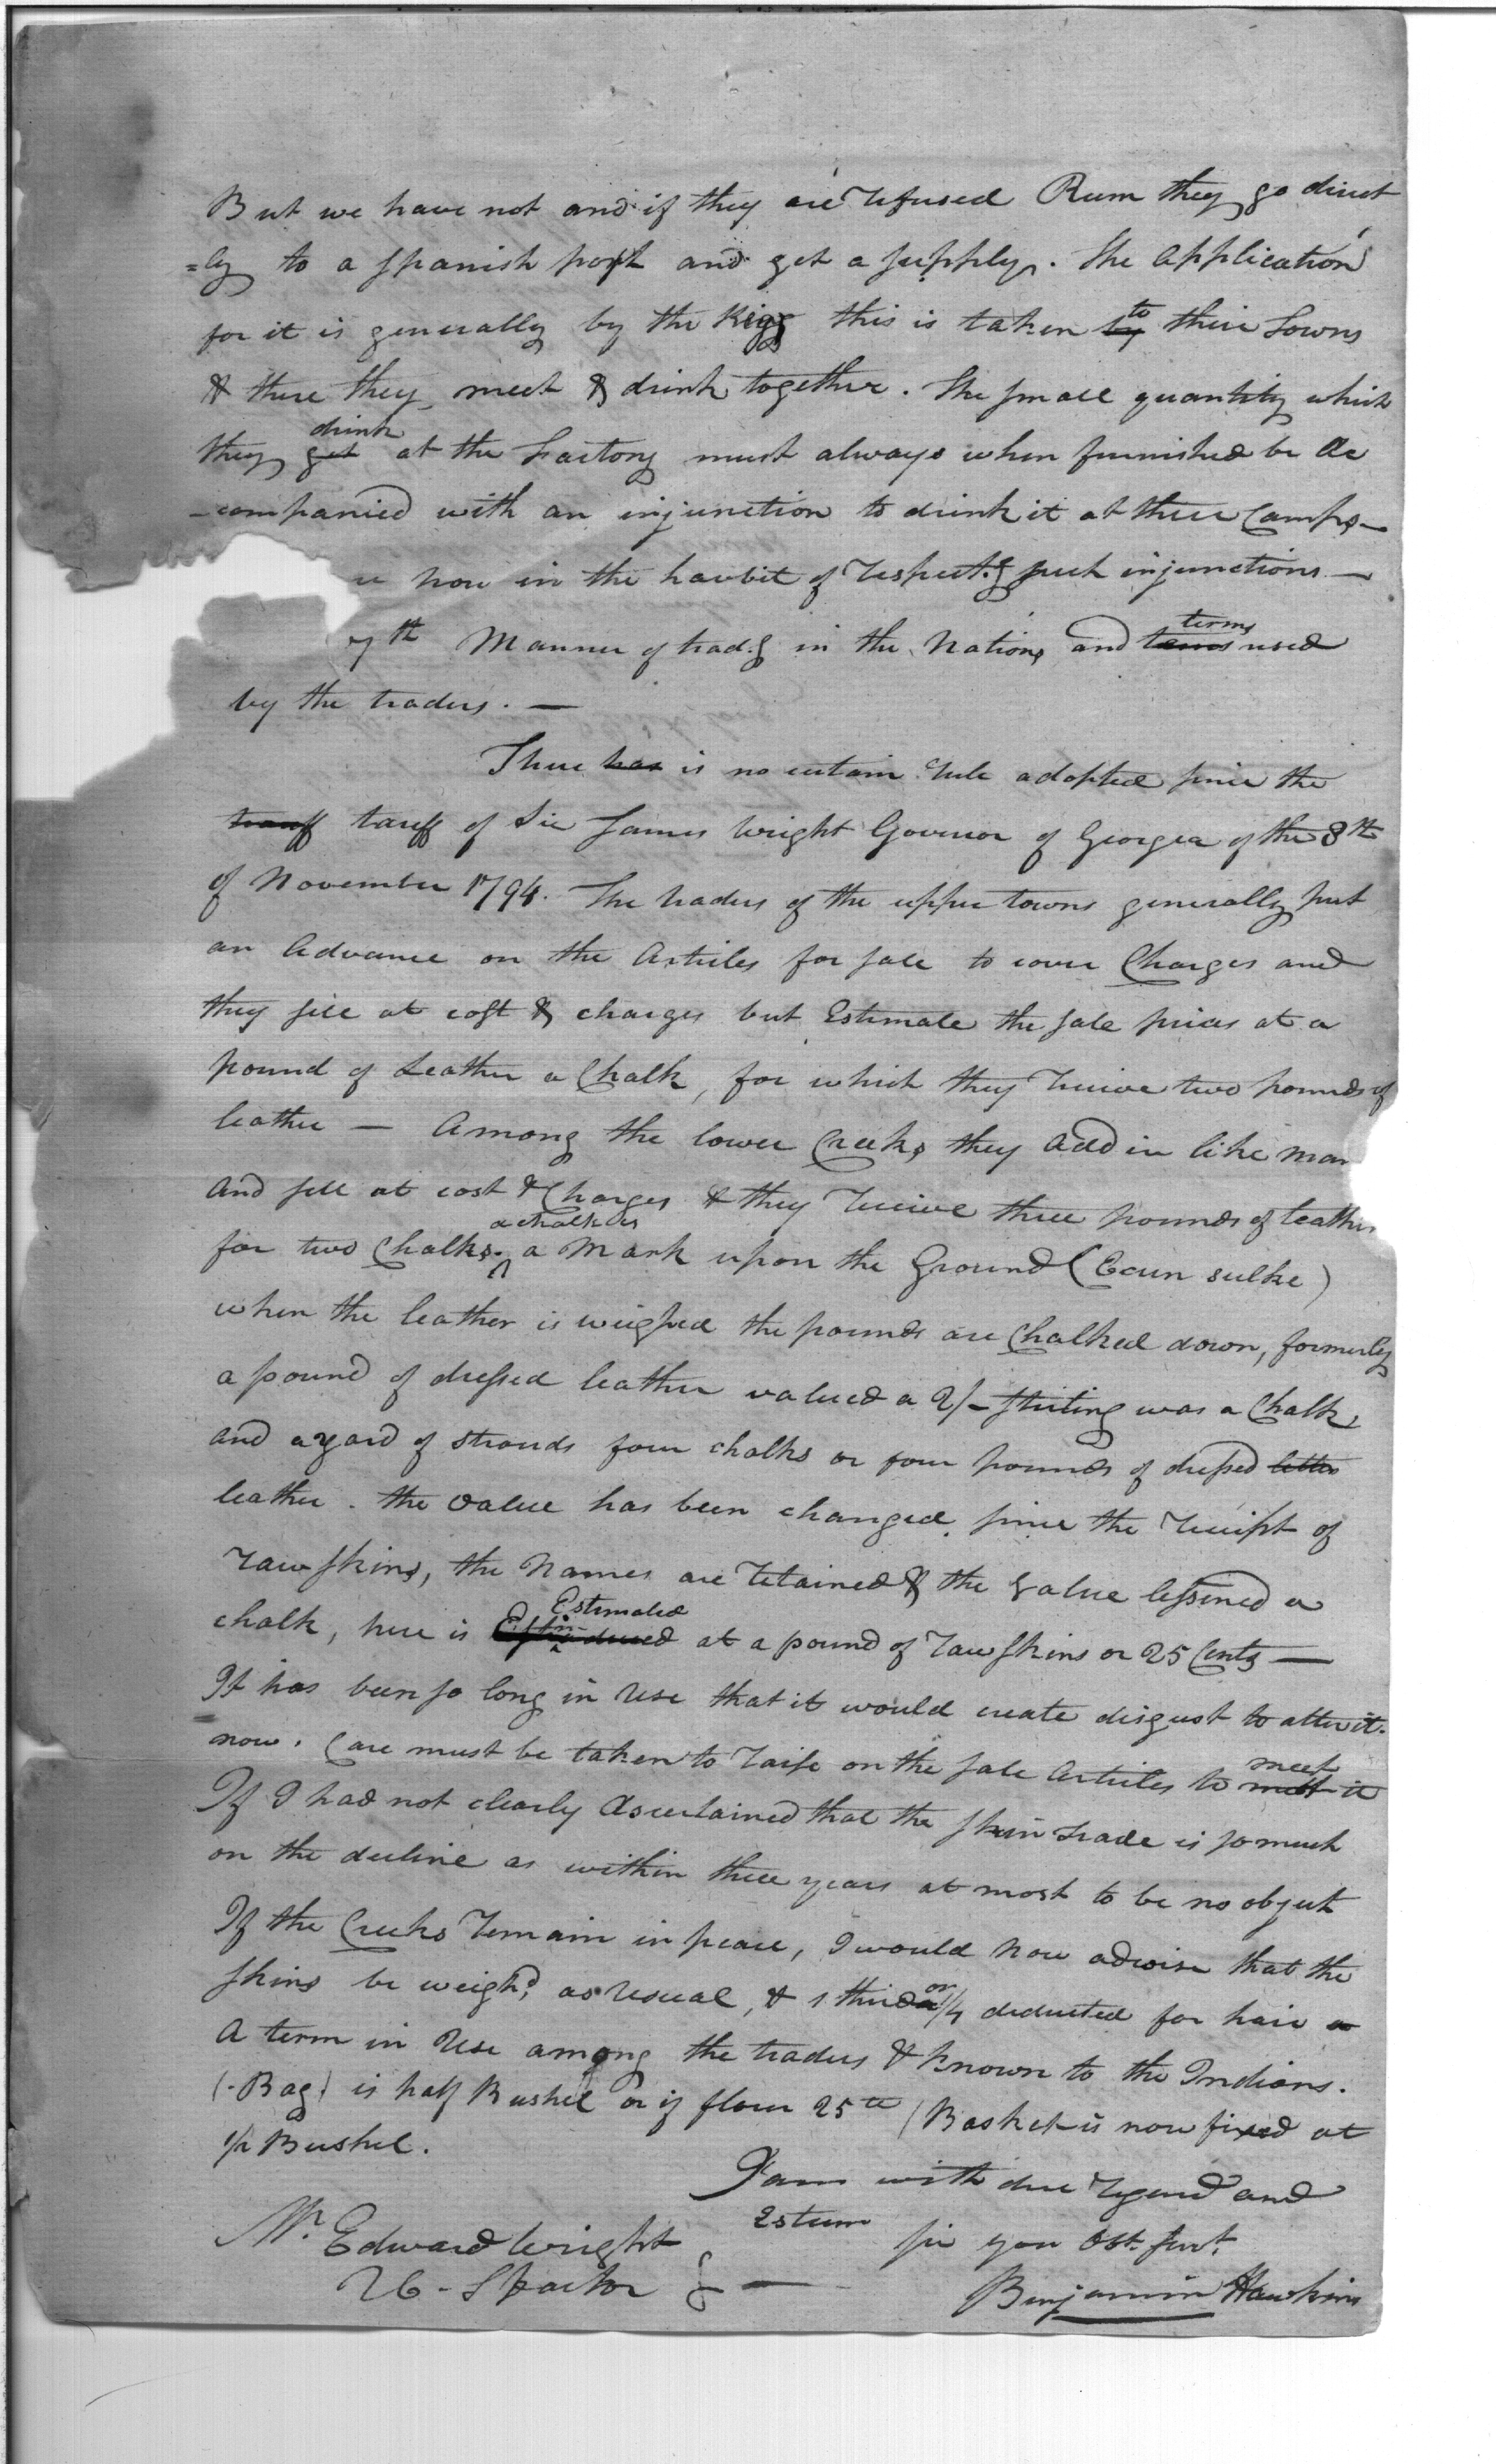 But we have not and if they are refused Rum they go direct
=ly to a Spanish post and get a supply. The application
for it is generally by the Kings this is taken by to their Towns
& there they meet & drink together. The small quantity which
they get drink at the Factory must always when furnished be Ac
-companied with an injunction to drink it at their Camps,—
now in the havbit of respect.g such injunctions —
7th Manner of trad.g in the Nations and terms used
by the traders. —
There has is no certain rule adopted since the
tariff of Sir James Wright Governor of Georgia of the 8th
of November 1794. The traders of the upper towns generally put
an Advance on the Articles for sale to cover Charges and
they sell at cost & charges but Estimate the sale prices at a
pound of Leather a Chalk, for which they receive two pounds of
leather — Among the lower Creeks they add in like man
and sell at cost & Charges & they receive three pounds of leather
for two Chalks. a chalk is a Mark upon the Ground (Ecun sulke)
when the leather is weighed the pounds are Chalked down, formerly
a pound of dressed leather valued a 2/– sterling was a Chalk
and a yard of strouds four chalks or four pounds of dressed letter
leather. the value has been changed since the receipt of
raw skins, the Names are retained & the value lessened a
chalk, here is Estimated at a pound of raw skins or 25 Cents —
It has been so long in use that it would create disgust to alter it.
now. Care must be taken to raise on the sale Articles to meet it
If I had not clearly Ascertained that the skin trade is so much
on the decline as within three years at most to be no object
If the Creeks remain in peace, I would now advise that the
skins be weigh.d as usual, & 1 third or 1/4 deducted for hair a
A term in Use among the traders & known to the Indians.
(-Bag) is half Bushel or if flour 25 (Basket is now fixed at
1/2 Bushel.
I am with due regard and
Esteem Sir your Obt. Servt.
Mr. Edward Wright
U S Factor } —
Benjamin Hawkins